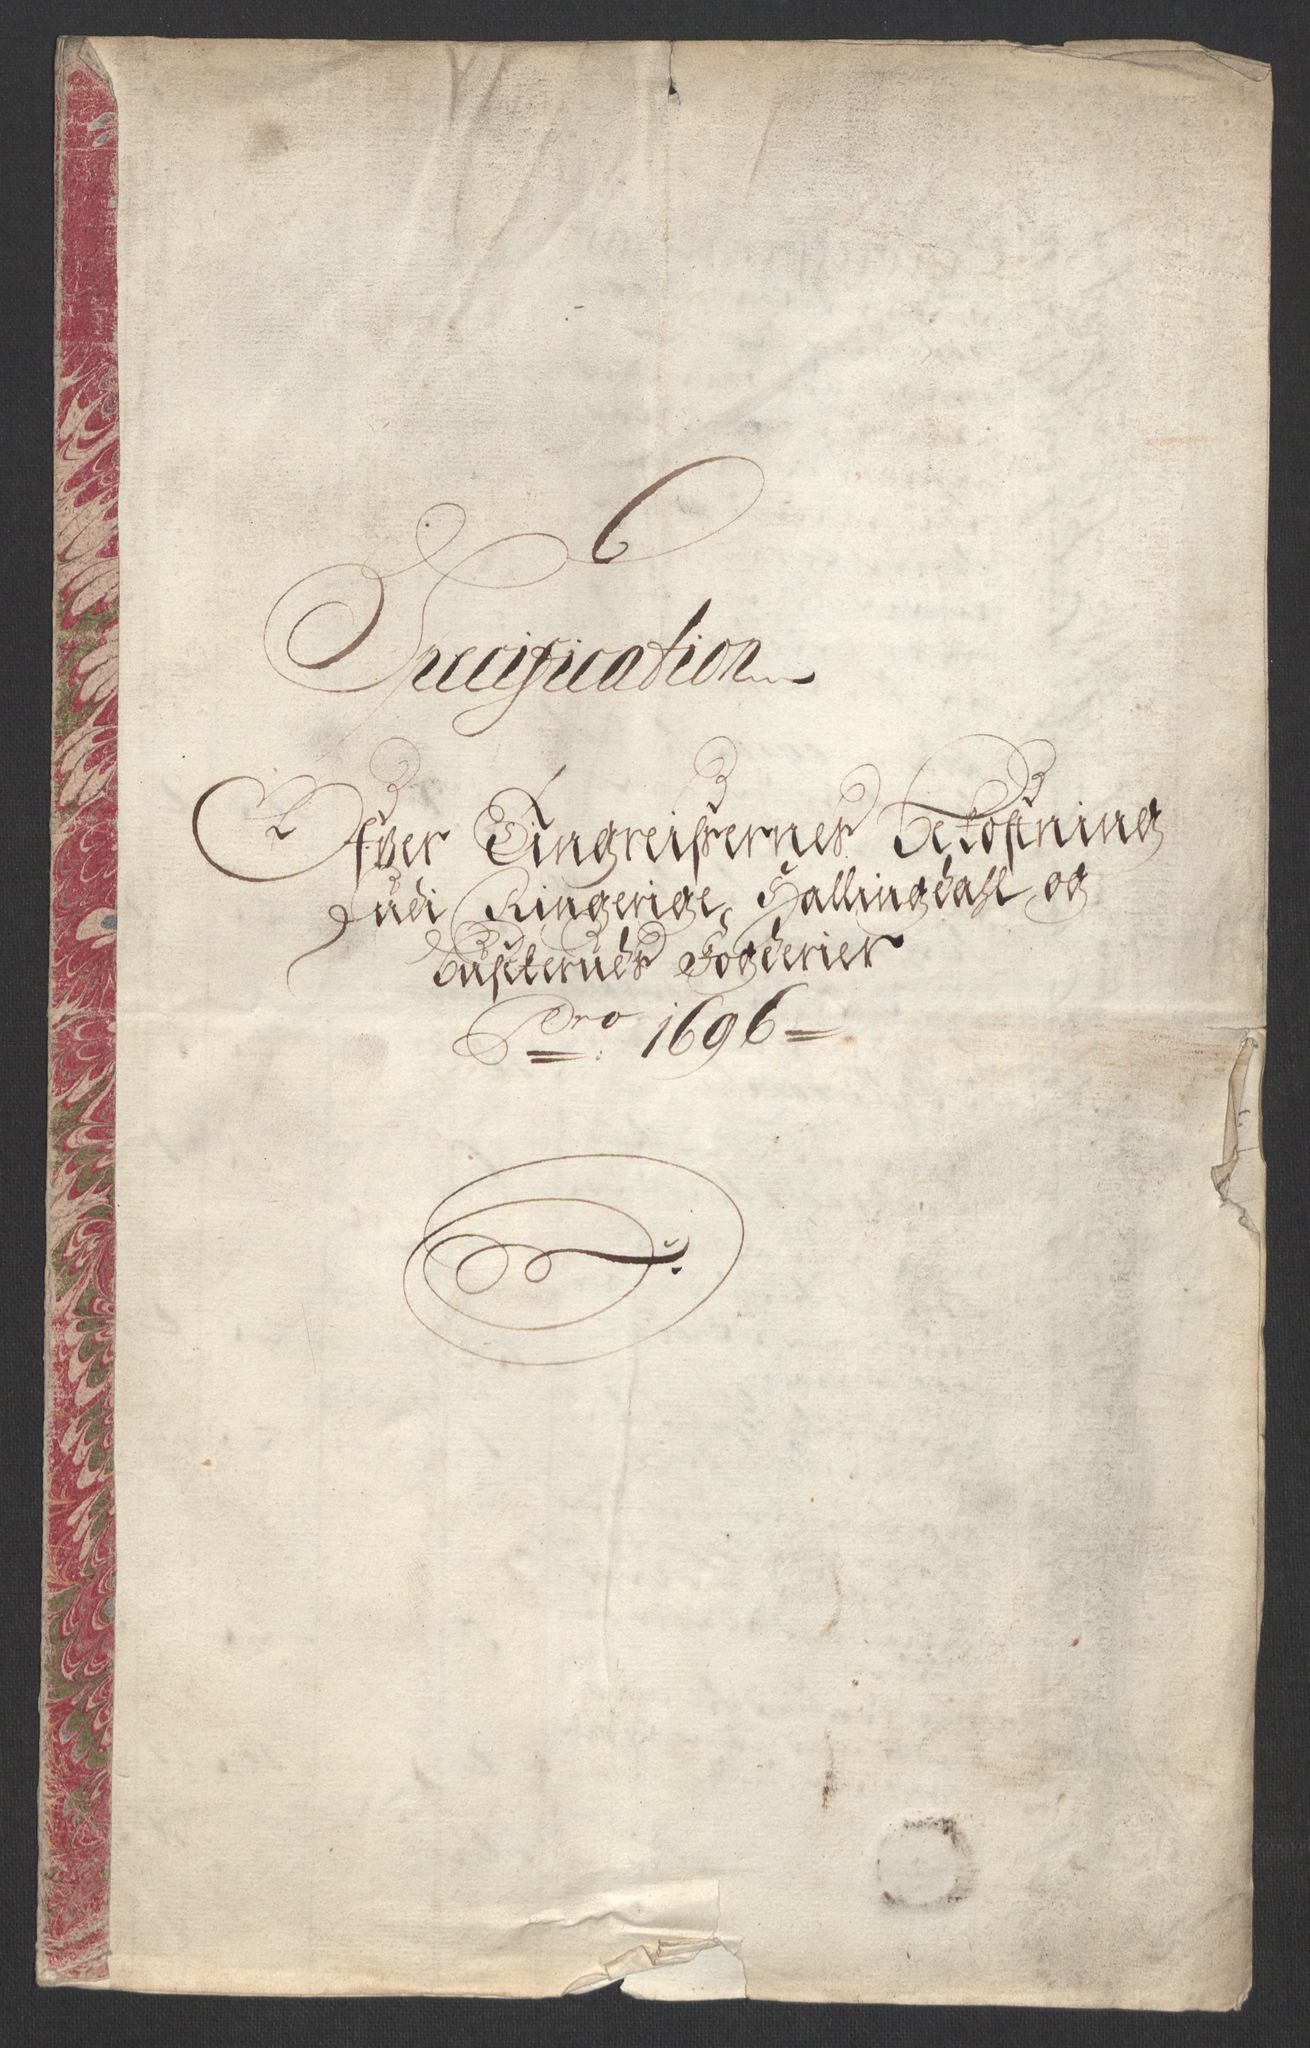 Specification
Ofver Tingreisernes Bekostning
Udi Ringerige, Hallingdahl og
Buskeruds Fogderier
Pro 1696